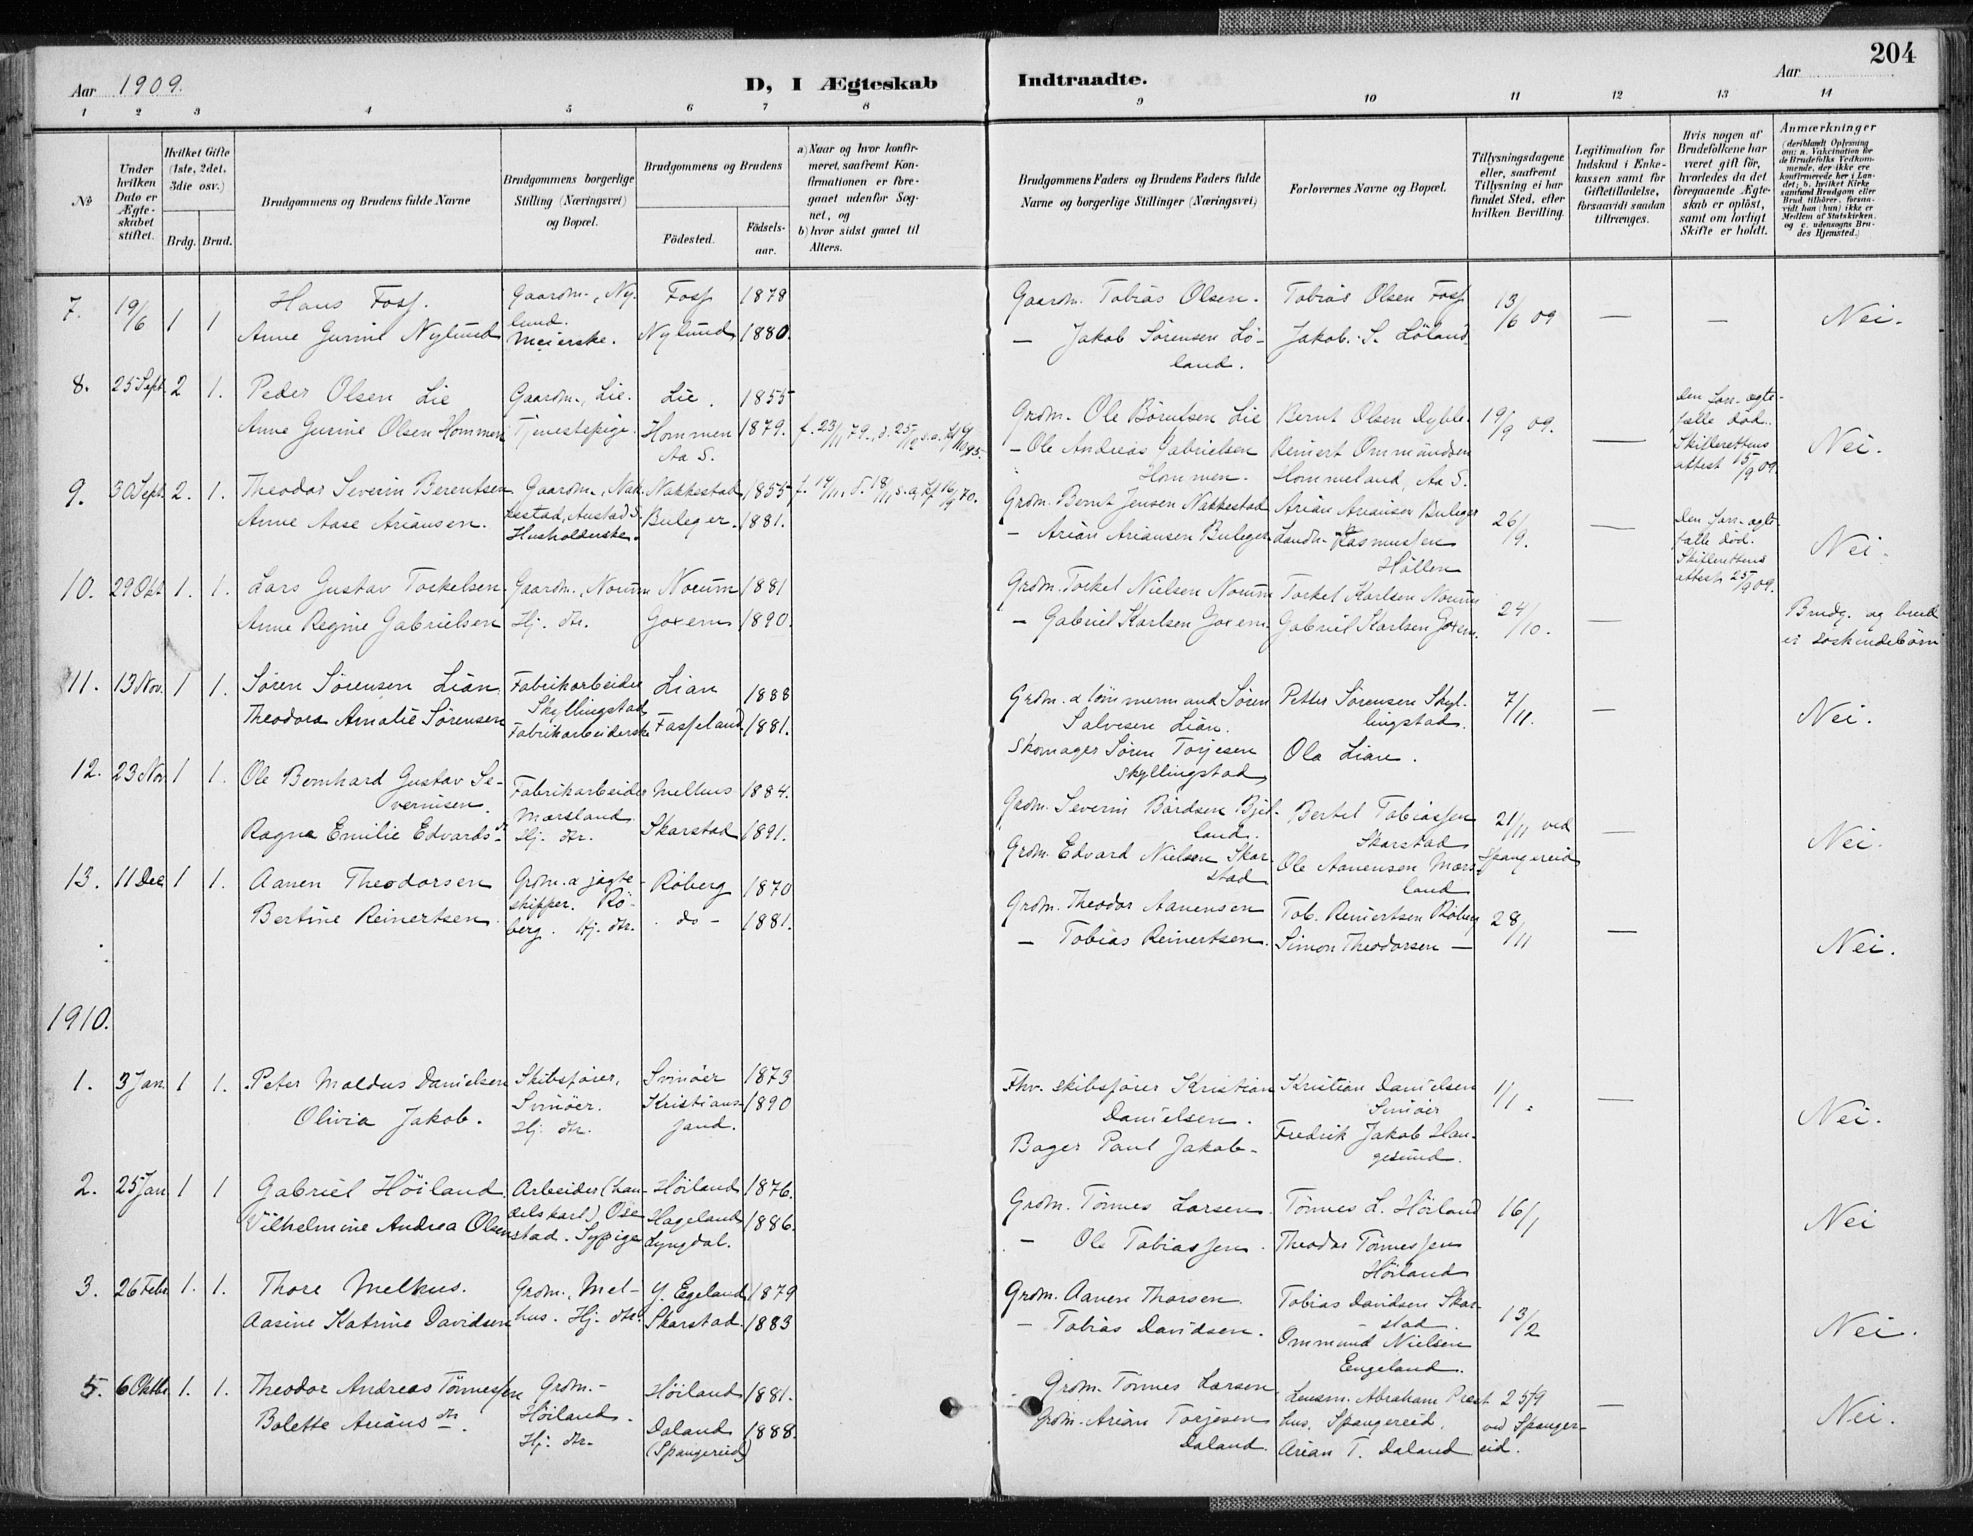 204
Aar 1909.
D, I Ægteskab Indtraadte.
Aar
1 2 3 4 5 6 7 8 9 10 11 12 13 14
№
Under hvilken Dato er Ægteskabet stiftet.
Hvilket Gifte (1ste, 2det, 3die osv.)
Brdg. Brud.
Brudgommens og Brudens fulde Navne
Brudgommens borgerlige Stilling (Næringsvei) og Bopæl.
Brudgommens og Brudens
Fødested.
Fødselsaar.
a) Naar og hvor konfirmeret, saafremt Konfirmationen er foregaaet udenfor Sognet, og
b) hvor sidst gaaet til Alters.
Brudgommens Faders og Brudens Faders fulde Navne og borgerlige Stillinger (Næringsvei)
Forlovernes Navne og Bopæl.
Tillysningsdagene eller, saafremt Tillysning ei har fundet Sted, efter hvilken Bevilling.
Legitimation for Indskud i Enkekassen samt for Giftetilladelse, forsaavidt saadan tiltrænges.
Hvis nogen af Brudefolkene har været gift før, hvorledes da det foregaaende Ægteskab er opløst, samt om lovligt Skifte er holdt.
Anmærkninger
(deriblandt Oplysning om: a. Vakcination for de Brudefolks Vedkommende, der ikke ere konfirmerede her i Landet; b. hvilket Kirkesamfund Brudgom eller Brud tilhører, forsaavidt han (hun) ikke er Medlem af Statskirken, og c. udensogns Brudes Hjemsted.)
7. 19/6 1 1 Hans Foss. Gaardm., Nylund. Foss 1878 Gaardm. Tobias Olsen. Tobias Olsen Foss 13/6 09 — — Nei.
Anne Gurine Nylund Meierske. Nylund 1880. — Jakob Sørensen Løland. Jakob S. Løland
8. 25 Sept. 2 1. Peder Olsen Lie Gaardm., Lie. Lie. 1855 Grdm. Ole Børutsen Lie Bernt Olsen Dyble 19/9 09. — Den forr. ægtefælle død. Skifterettens attest 15/9 09. Nei.
Anne Gurine Olsen Hommen Tjenestepige. Hommen Aa S. 1879. f. 23/11 79. — Ole Andreas Gabrielsen Hommen. Reinert Ommundsen Hommeland, Aa S.
9. 30 Sept. 2. 1. Theodor Severin Berentsen Gaardm., Nakkestad, Austad S. Nakkestad 1855 Grdm. Bernt Jensen Nakkestad Arian Ariansen Buleger 26/9. — Den forr. ægtefælle død. Skifterettens attest 25/9 09. Nei.
Anne Aase Ariansen. Husholderske. Buleger. 1881. — Arian Ariansen Buleger Landh. Rasmussen Hällen
10. 29 Okt 1. 1. Lars Gustav Torkelsen Gaardm., Norum Norum 1881 Grdm. Torkel Nielsen Norum Torkel Karlsen Norum 24/10. — Brudg. og brud ei søskendebørn
Anne Regine Gabrielsen Hj. dtr. Goxem 1890. — Gabriel Karlsen Goxem. Gabriel Karlsen Goxem.
11. 13 Nov. 1 1. Søren Sørensen Lian Fabrikarbeider Skyllingstad Lian 1888 Grdm. & tømmermand Søren Salvesen Lian. Petter Sørensen Skyllingstad. 7/11. — Nei.
Theodora Amalie Sørensen Fabrikarbeiderske Fasseland 1881. Skomager Søren Torjesen Skyllingstad Ola Lian.
12. 23 Nov 1 1. Ole Bernhard Gustav Severinsen. Fabrikarbeider Marsland. Melhus 1884. Grdm. Severin Bårdsen Bjelland. Bertel Tobiassen Skarstad 21/11 ved Spangereid — Nei.
Ragna Emilie Edvardsdtr. Hj. dtr. Skarstad 1891. Grdm. Edvard Nielsen Skarstad Ole Aanensen Marsland
13. 11 Dec 1 1. Aanen Theodorsen Grdm. & jagteskipper. Røberg. Røberg 1870 Grdm. Theodor Aanensen Tob. Reinertsen Røberg 28/11 — Nei.
Bertine Reinertsen. Hj. dtr. do — 1881. — Tobias Reinertsen. Simon Theodorsen —
1910.
1. 3 Jan. 1 1. Peter Maldus Danielsen Skibsfører, Svinøer. Svinøer 1873 Fhv. skibsfører Kristian Danielsen. Kristian Danielsen Svinøer 1/1. — Nei.
Olivia Jakob. Hj. dtr. Kristianssand. 1890 Bager Paul Jakob. Fredrik Jakob Haugesund.
2. 25 Jan 1 1 Gabriel Høiland Arbeider (handelskart.), Osestad. Høiland 1876. Grdm. Tønnes Larsen. Tønnes L. Høiland 16/1 Nei
Wilhelmine Andrea Olsen Sypige Hageland Lyngdal. 1886. — Ole Tobiassen. Theodor Tønnessen Høiland
3. 26 Febr. 1. 1. Thore Melhus. Grdm., Melhus. Y. Egeland 1879 Grdm. Aanen Thorsen. Tobias Davidsen Skarstad. 13/2 Nei.
Aasine Katrine Davidsen Hj. dtr. Skarstad. 1883 — Tobias Davidsen. Ommund Nielsen Engeland.
5. 6 Oktbr 1. 1. Theodor Andreas Tønnessen Grdm. Høiland. Høiland 1881. Grdm. Tønnes Larsen Lensm. Abraham Presthus, Spangereid. 25/9 ved Spangereid. — Nei.
Bolette Ariansdtr. Hj. dtr. Daland (Spangereid) 1888. Grdm. Arian Torjesen Daland. Arian T. Daland